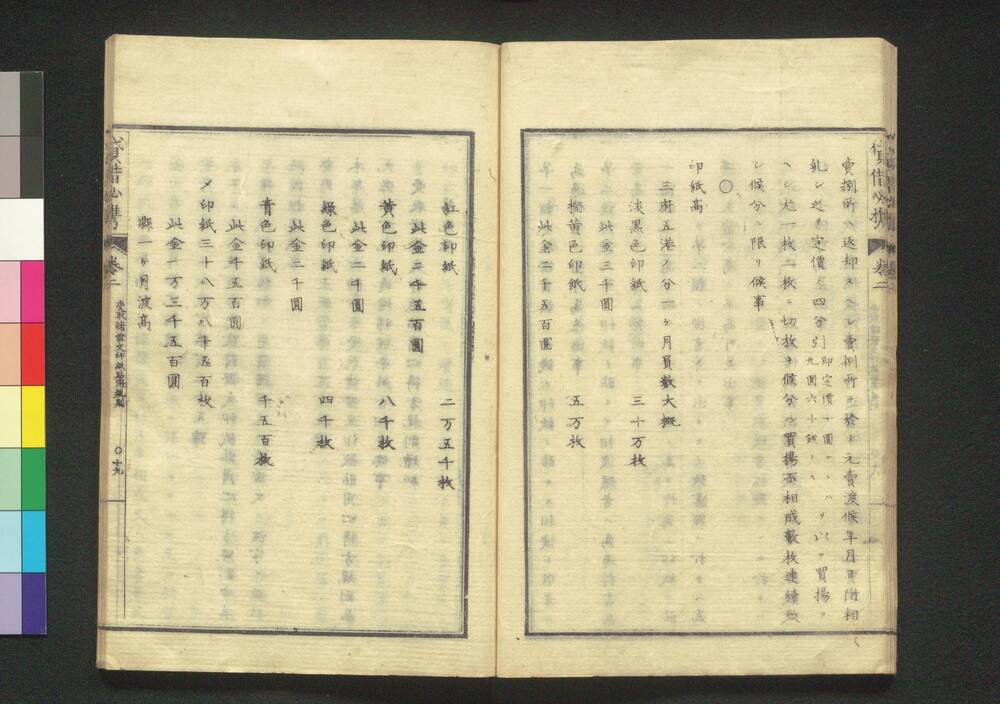 賣捌所ヘ返却スヘシ賣捌所ニ於テ元賣渡候年月日附相
糺シ之ヲ定價ノ四分引即定價十圓ナレハ九圓六十錢ナリヲ以テ買揚ク
ヘシ尤一枚二枚ニ切放チ候分ハ買揚不相成數枚連續致
シ候分ニ限リ候事
○
印紙高
三府五港ノ分一ヶ月員數大概
淡黒色印紙 三十万枚
此金三千圓
橙黄色印紙 五万枚
此金二千五百圓
紅色印紙 二万五千枚
此金二千五百圓
黄色印紙 八千枚
此金二千圓
緑色印紙 四千枚
此金二千圓
青色印紙 千五百枚
此金千五百圓
〆印紙三十八万八千五百枚
此金一万三千五百圓
縣一ヶ月渡高
貸借必携
卷二
受取諸證文印紙貼用規則
○十九